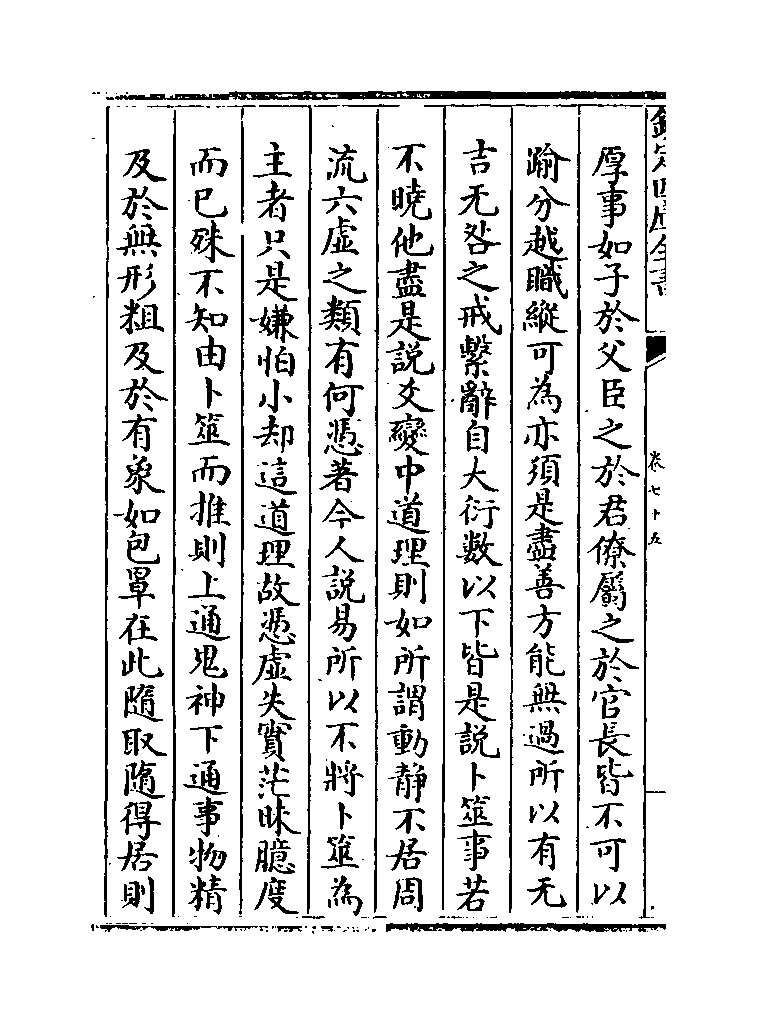 欽定四庫全書
卷七十五
厚事如子於父臣之於君僚屬之於官長皆不可以
踰分越職縱可為亦須是盡善方能無過所以有无
吉无咎之戒繫辭自大衍数以下皆是説卜筮事若
不曉他盡是説爻變中道理則如所謂動静不居周
流六虚之類有何慿著今人説易所以不將卜筮為
主者只是嫌怕小却這道理故慿虚失實茫昧臆度
而已殊不知由卜筮而推則上通鬼神下通事物精
及於無形粗及於有象如包罩在此隨取隨得居則